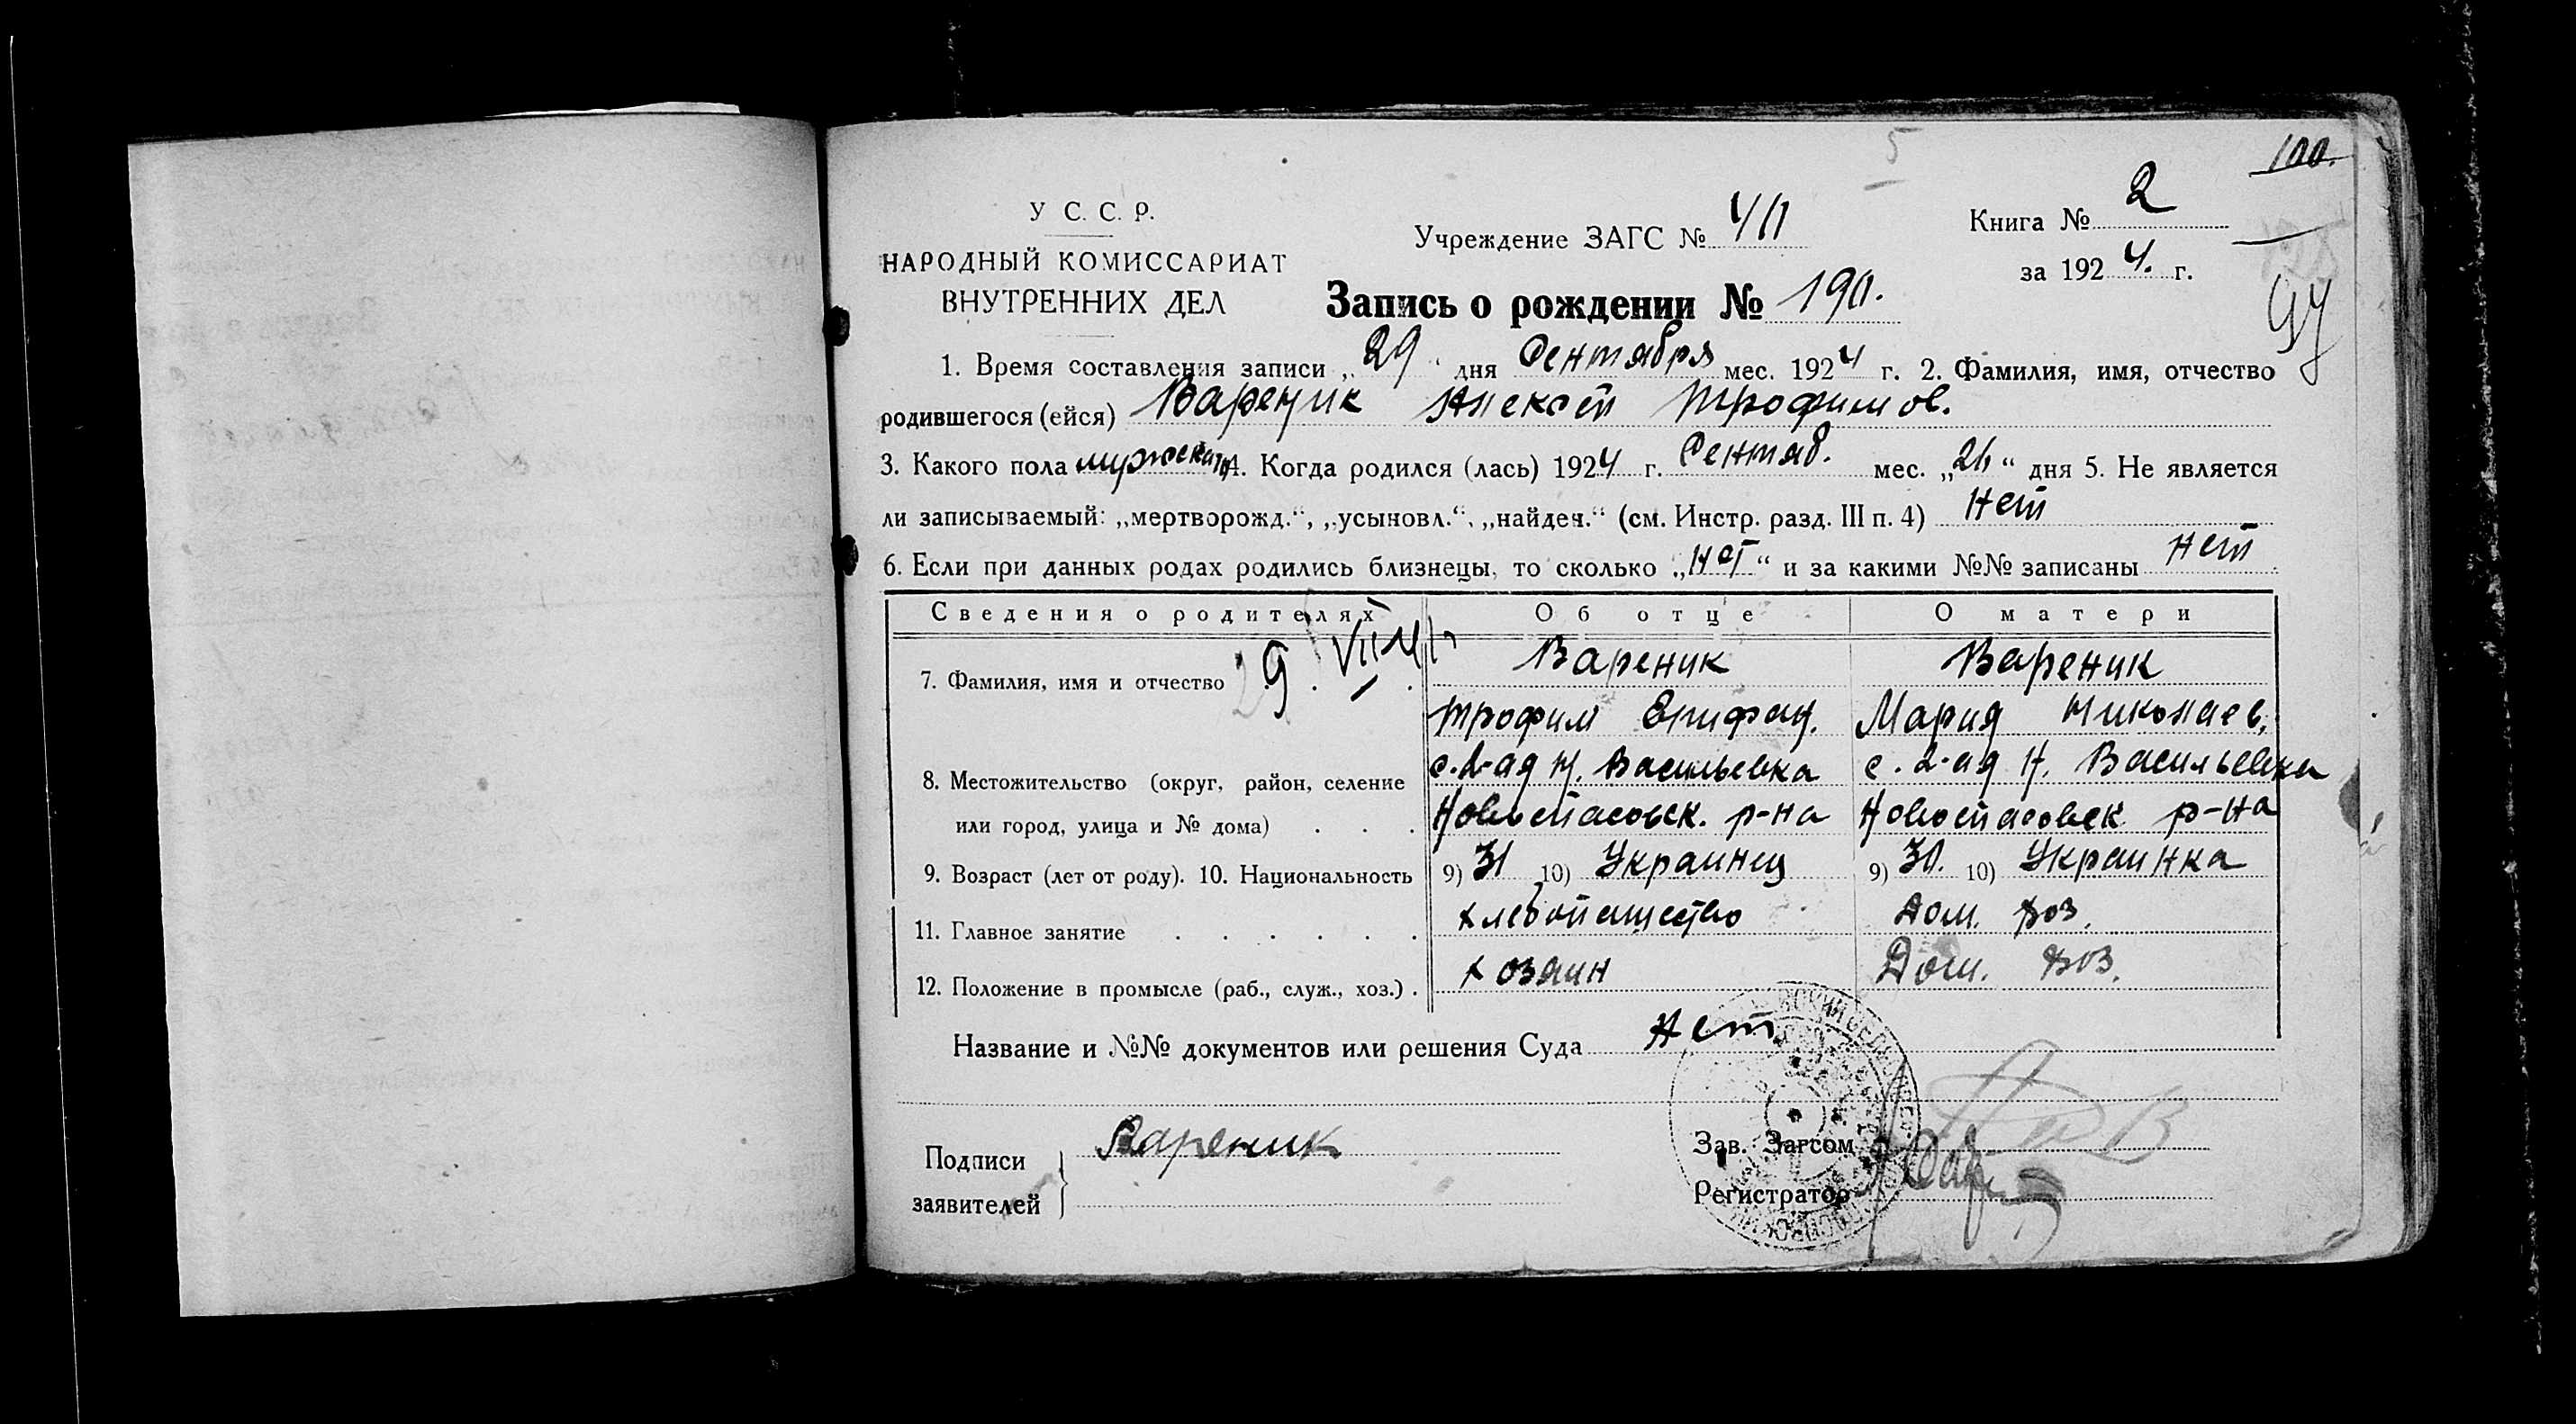 100.
5
У С. С. Р.
НАРОДНЫЙ КОМИССАРИАТ
ВНУТРЕННИХ ДЕЛ
Учреждение ЗАГС № 40
Книга № 2
за 1924. г.
Запись о рождении № 190.
97
1. Время составления записи „29“ дня Сентября мес. 1924 г. 2. Фамилия, имя, отчество
родившегося (ейся) Вареник Алексей Трофимов.
3. Какого пола мужского 4. Когда родился (лась) 1924 г. Сентяб. мес. „26“ дня 5. Не является
ли записываемый: „мертворожд.“, „усыновл.“, „найден.“ (см. Инстр. разд. III п. 4) Нет
6. Если при данных родах родились близнецы, то сколько „нет“ и за какими №№ записаны нет
Сведения о родителях Об отце О матери
7. Фамилия, имя и отчество 29. VII Вареник Вареник
Трофим Епифан. Мария Николаев.
8. Местожительство (округ, район, селение с. 2-ая Н. Васильевка с. 2-ая Н. Васильевка
или город, улица и № дома) . . . Новоспасовск. р-на Новоспасовск р-на
9. Возраст (лет от роду). 10. Национальность 9) 31 10) Украинец 9) 30. 10) Украинка
11. Главное занятие . . . . . . Хлебопашество Дом. хоз.
12. Положение в промысле (раб., служ., хоз.) . Хозяин Дом. хоз.
Название и №№ документов или решения Суда Нет
Подписи
заявителей
Вареник
Зав. Загсом
Регистратор